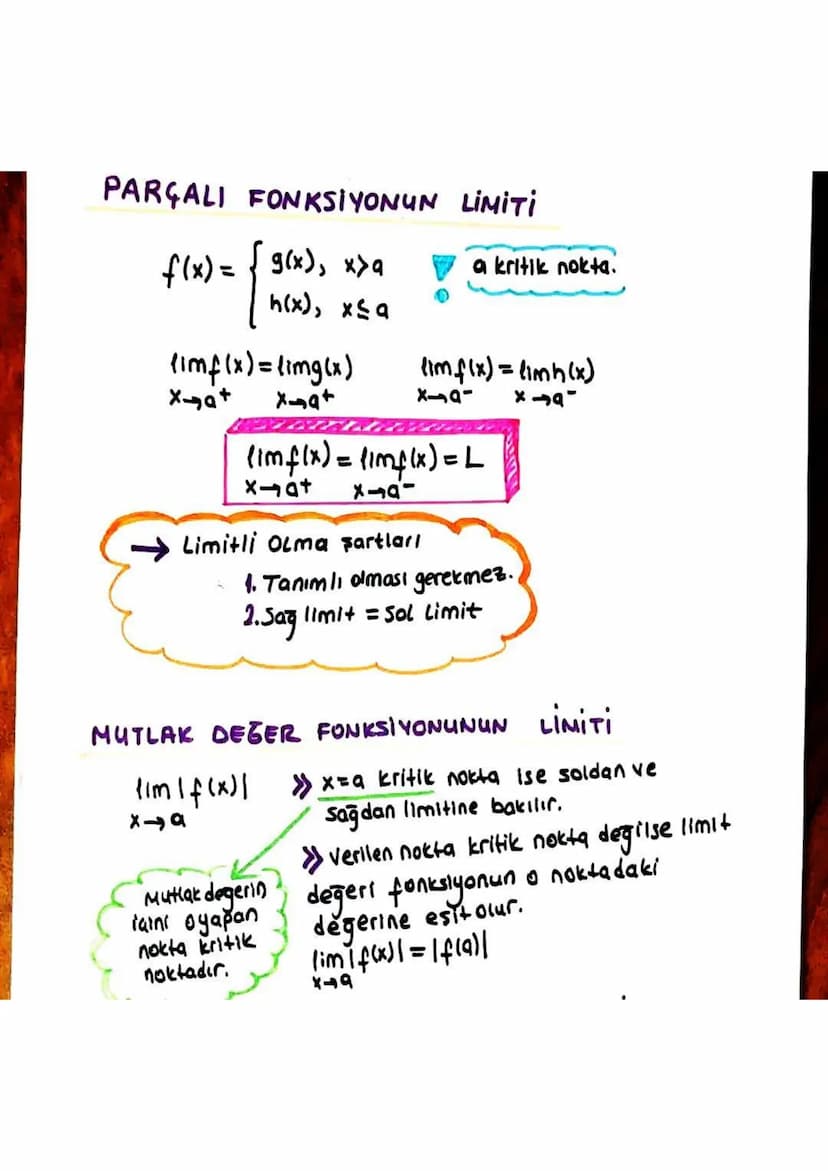 PARÇALI FONKSİYONUN LİMİTİ
f(x) = { g(x), x>a
h(x), x≤a
a kritik nokta.
limf(x) = limg(x)
x→a+ x→a+
limf(x) = limh(x)
x→a- x→a-
limf(x) = limf(x) = L
x→a+ x→a-
→ Limitli olma şartları
1. Tanımlı olması gerekmez.
2. Sağ limit = sol limit
MUTLAK DEĞER FONKSİYONUNUN LİMİTİ
lim|f(x)|
x→a
» x=a kritik nokta ise soldan ve
sağdan limitine bakılır.
» verilen nokta kritik nokta değilse limit
değeri fonksiyonun o noktadaki
değerine eşit olur.
lim|f(x)| = |f(a)|
x→a
Mutlak değerin
içini 0 yapan
nokta kritik
noktadır.